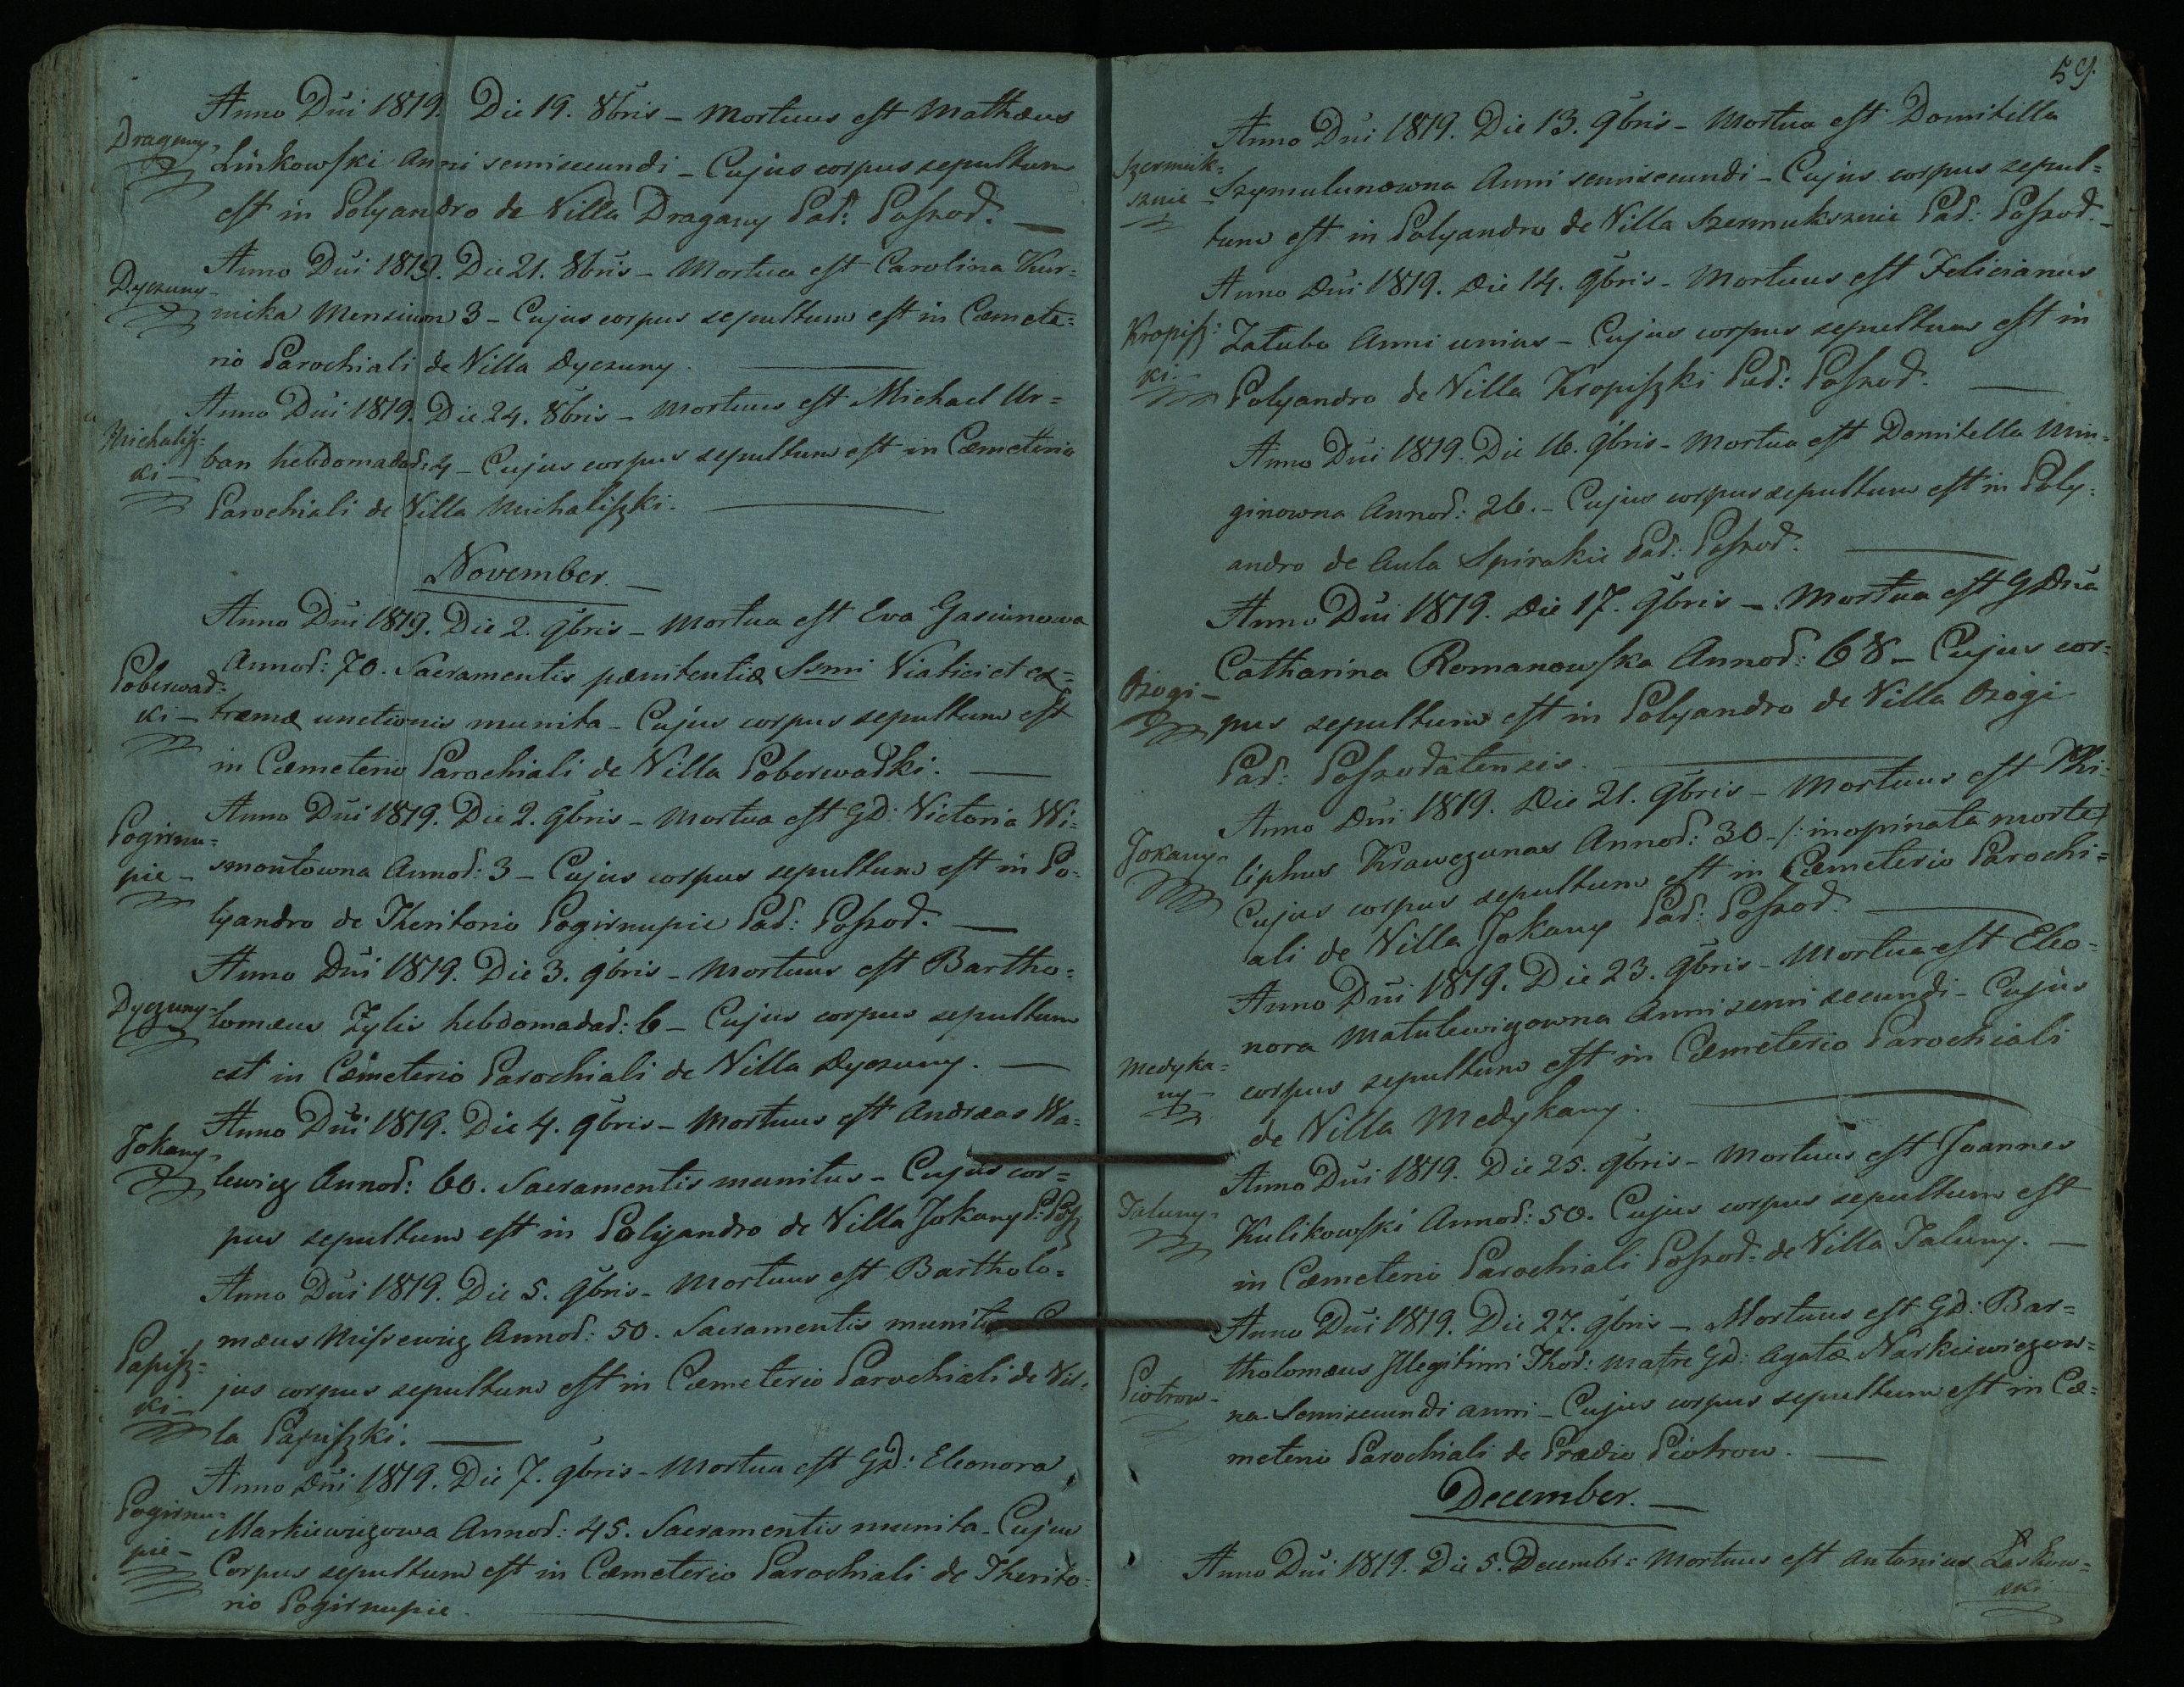 Anno Dni 1819. Die 19. 8bris – Mortuus est Mathæus
Dragany
Linkowski Anni semisecundi – Cujus corpus sepultum
est in Polyandro de Villa Dragany Par: Poszod.
Anno Dni 1819. Die 21. 8bris – Mortua est Carolina Kur=
Dyczuny
nika Mensium 3 – Cujus corpus sepultum est in Cœmete=
rio Parochiali de Villa Dyczuny.
Anno Dni 1819. Die 24. 8bris – Mortuus est Michael Ur=
Michalisz=
ki –
ban hebdomadar: 4 – Cujus corpus sepultum est in Cœmeterio
Parochiali de Villa Michaliszki.
November.
Anno Dni 1819. Die 2. 9bris – Mortua est Eva Gasiunowa
Annor: 70. Sacramentis pœnitentiæ Ssmi Viatici et ex=
Poberwad=
ki –
tremæ unctionis munita – Cujus corpus sepultum est
in Cœmeterio Parochiali de Villa Poberwadki.
Anno Dni 1819. Die 2. 9bris – Mortua est GD: Victoria Wi=
Pogirnu=
pie –
smontowna Annor: 3 – Cujus corpus sepultum est in Po=
lyandro de Theritorio Pogirnupie Par: Poszod.
Anno Dni 1819. Die 3. 9bris – Mortuus est Bartho=
Dyczuny
lomæus Zylis hebdomadar: 6 – Cujus corpus sepultum
est in Cœmeterio Parochiali de Villa Dyczuny.
Anno Dni 1819. Die 4. 9bris – Mortuus est Andreas Wa=
Jokany
lewicz Annor: 60. Sacramentis munitus – Cujus cor=
pus sepultum est in Polyandro de Villa Jokany P: Posz
Anno Dni 1819. Die 5. 9bris – Mortuus est Bartholo=
mæus Missewicz Annor: 50. Sacramentis munitus
Papisz=
ki –
jus corpus sepultum est in Cœmeterio Parochiali de Vil=
la Papiszki.
Anno Dni 1819. Die 7. 9bris – Mortua est GD: Eleonora
Pogirnu=
pie –
Markiewiczowa Annor: 45. Sacramentis munita – Cujus
Corpus sepultum est in Cœmeterio Parochiali de Therito=
rio Pogirnupie.
59.
Anno Dni 1819. Die 13. 9bris – Mortua est Domitilla
Szermuk=
sznie –
Szymulunowna Anni semisecundi – Cujus corpus sepul=
tum est in Polyandro de Villa Szermuksznie Par: Poszod.
Anno Dni 1819. Die 14. 9bris – Mortuus est Felicianus
Kropisz=
ki –
Zatuba Anni unius – Cujus corpus sepultum est in
Polyandro de Villa Kropiszki Par: Poszod.
Anno Dni 1819. Die 16. 9bris – Mortua est Domitella Min=
ginowna Annor: 26. – Cujus corpus sepultum est in Poly=
andro de Aula Spirakie Par: Poszod.
Anno Dni 1819. Die 17. 9bris – Mortua est GDna
Catharina Romanowska Annor: 68 – Cujus cor=
Ozogi –
pus sepultum est in Polyandro de Villa Ozogi
Par: Poszodatensis.
Anno Dni 1819. Die 21. 9bris – Mortuus est Phi=
Jokany
liphus Krawczunas Annor: 30 – /: inopinata morte/
Cujus corpus sepultum est in Cœmeterio Parochi=
ali de Villa Jokany Par: Poszod.
Anno Dni 1819. Die 23. 9bris – Mortua est Eleo=
nora Matulewiczowna Anni semi secundi – Cujus
Medyka=
ny –
corpus sepultum est in Cœmeterio Parochiali
de Villa Medykany.
Anno Dni 1819. Die 25. 9bris – Mortuus est Joannes
Jaluny
Kulikowski Annor: 50. Cujus corpus sepultum est
in Cœmeterio Parochiali Poszod: de Villa Jaluny.
Anno Dni 1819. Die 27. 9bris – Mortuus est GD: Bar=
tholomæus Illegitimi Thor: Matre GD: Agatæ Narkiewiczow=
Piotrow –
na Semisecundi anni – Cujus corpus sepultum est in Cœ=
meterio Parochiali de Prædio Piotrow.
December.
Anno Dni 1819. Die 5. Decembr: Mortuus est Antonius Laskow=
ski